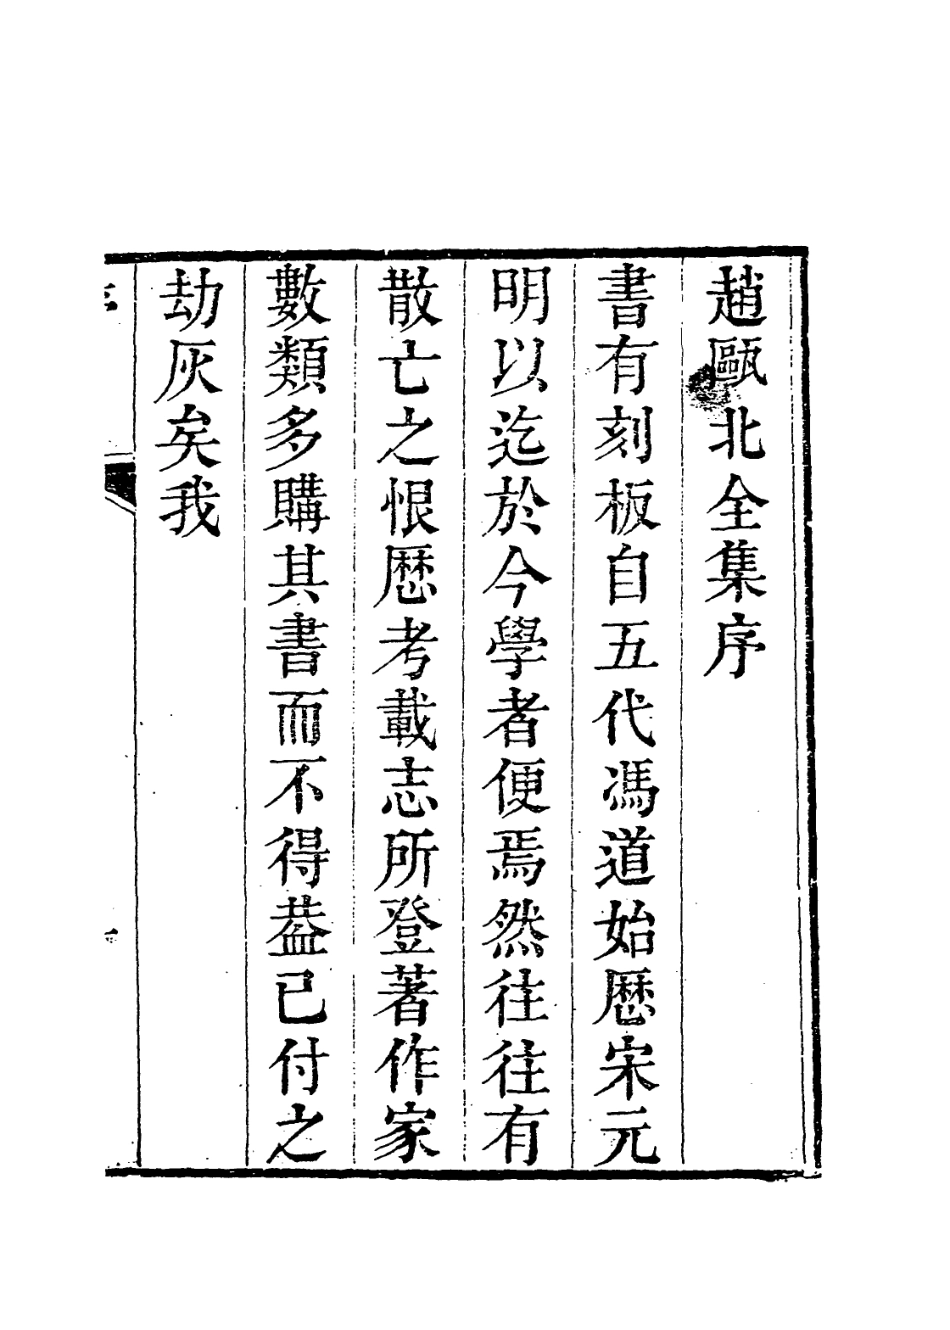 趙甌北全集序
書有刻板自五代馮道始歴宋元
明以迄於今學者便焉然往往有
散亡之恨歴考載志所登著作家
數類多購其書而不得葢已付之
劫灰矣我